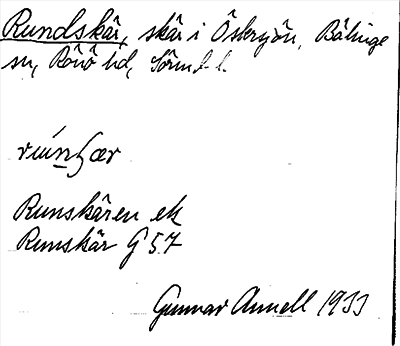 Rundskär, skär i Östersjön, Bälinge
sn, Rönö hd, Sörml. l.
rúnʃær
Runskären ek
Runskär G 57
Gunnar Annell 1933